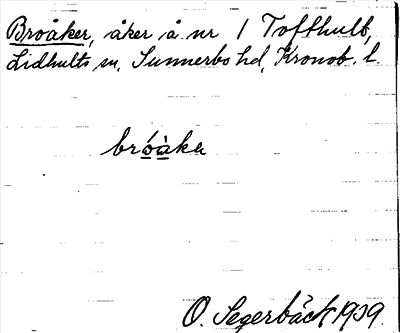 Broåker, åker å nr 1 Tofthult,
Lidhults sn, Sunnerbo hd, Kronob. l.
bróàka
O. Segerbäck 1939.